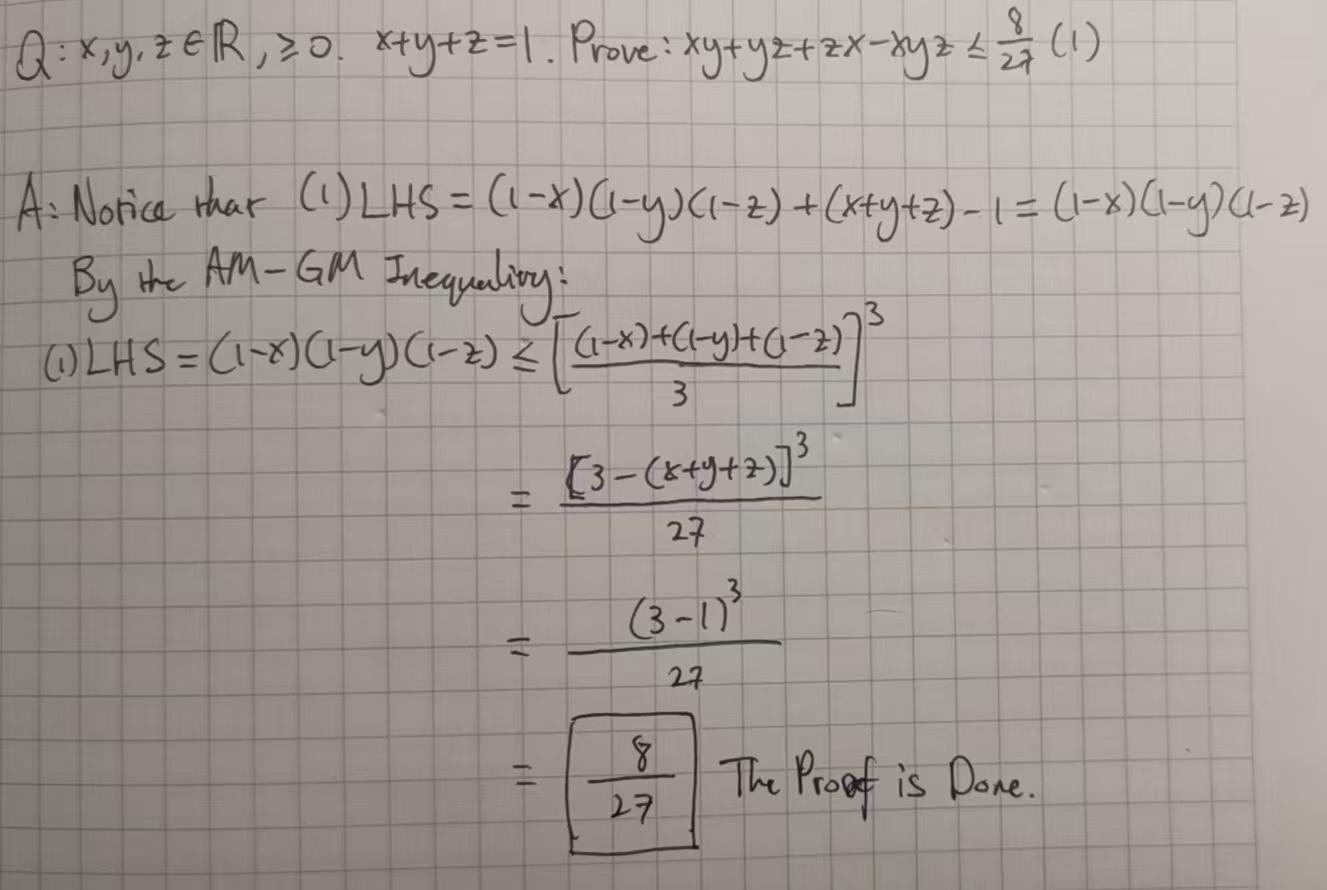 Q: x,y,z∈ℝ, ≥0. x+y+z=1. Prove: xy+yz+zx-xyz ≤ 8/27 (1)
A: Notice that (1)LHS = (1-x)(1-y)(1-z)+(x+y+z)-1 = (1-x)(1-y)(1-z)
By the AM-GM Inequality:
(1)LHS = (1-x)(1-y)(1-z) ≤ [((1-x)+(1-y)+(1-z))/3]^3
= [3-(x+y+z)]^3/27
= (3-1)^3/27
= 8/27 The Proof is Done.